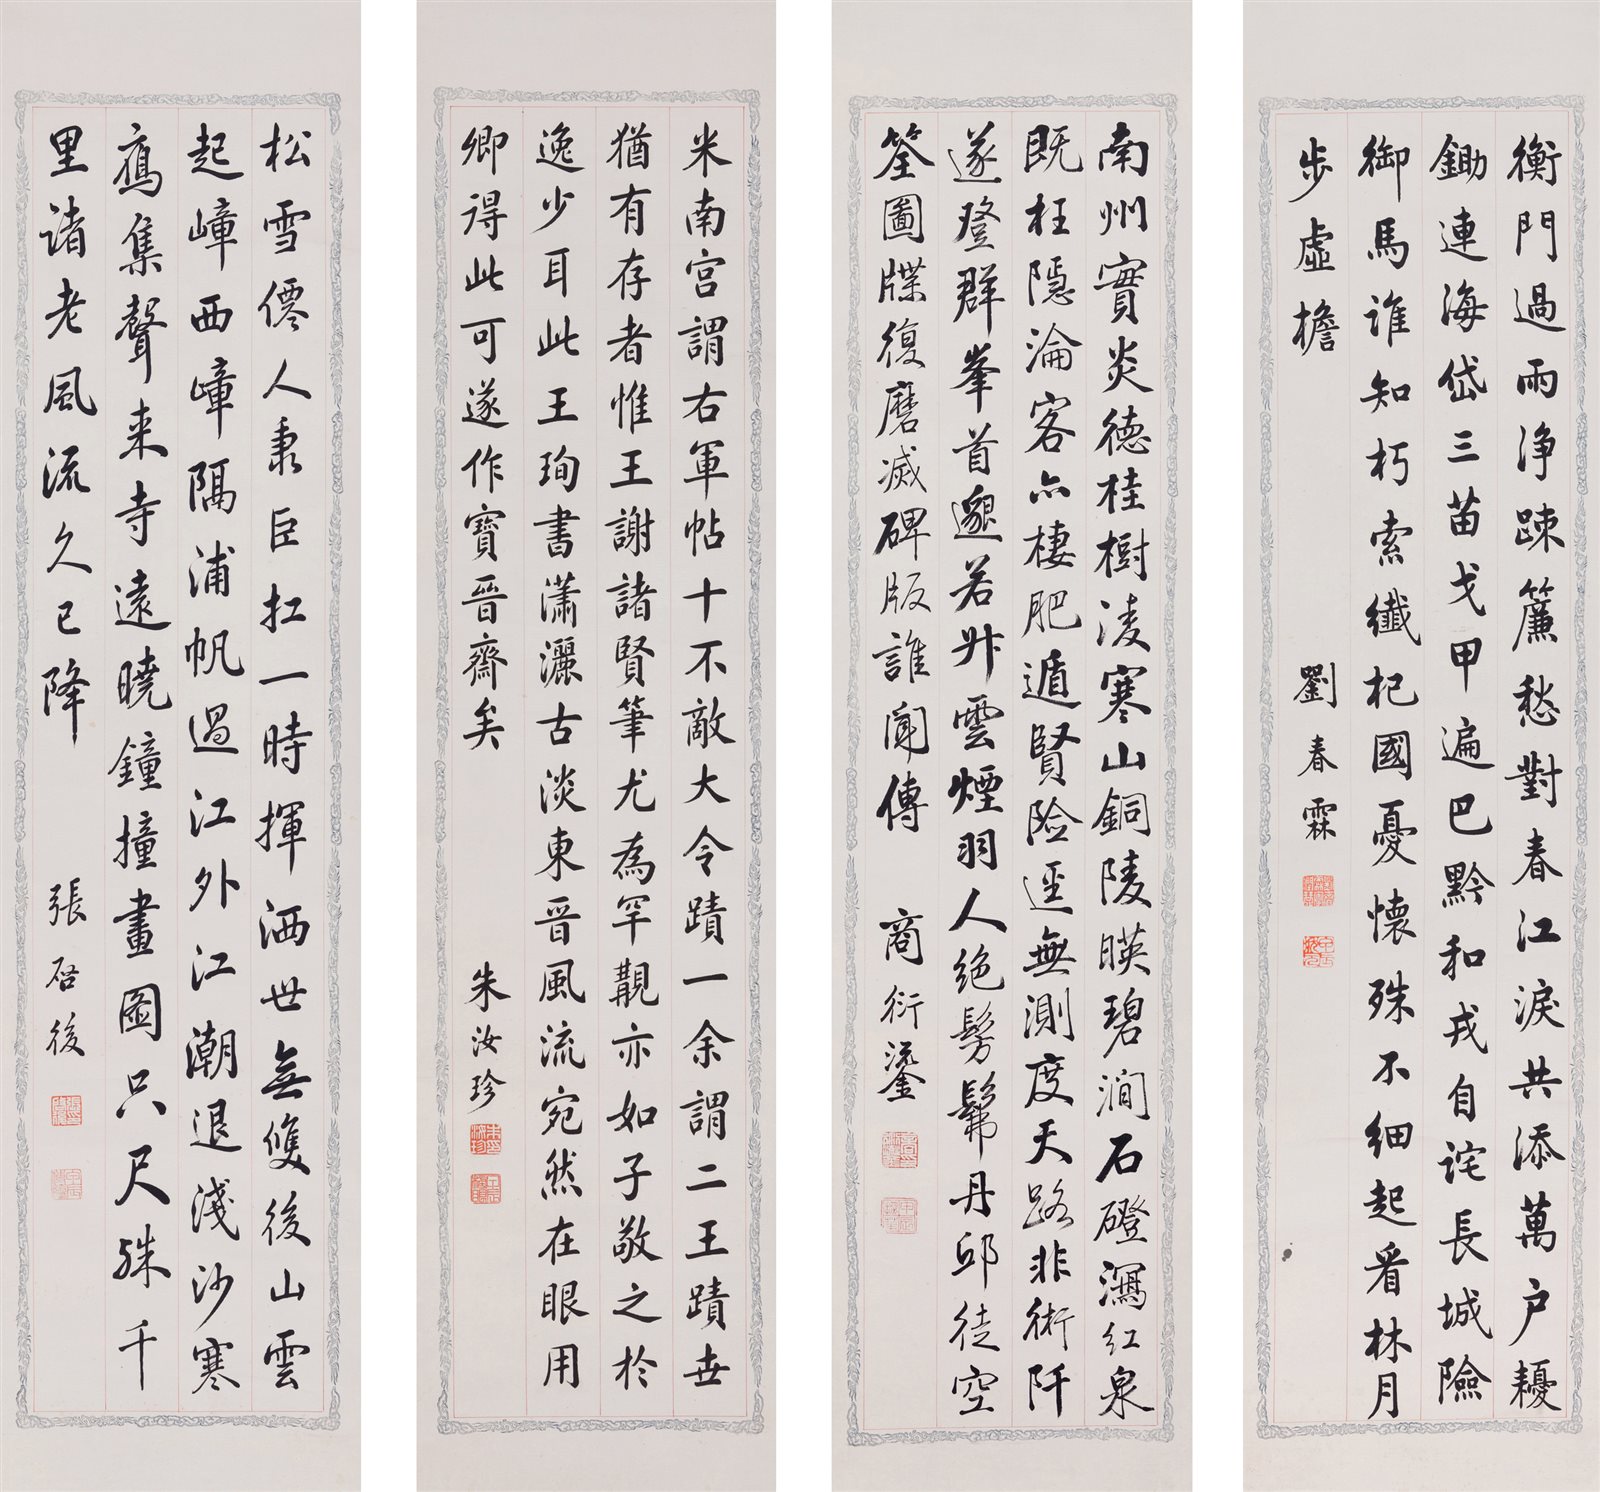 衡門過雨淨踈簾愁對春江淚共添萬户耰
鋤連海岱三苗戈甲遍巴黔和戎自詫長城險
御馬誰知朽索纖杞國憂懷殊不細起看林月
步虛檐
劉春霖
南州實炎德桂樹淩寒山銅陵暎碧澗石磴瀉紅泉
既枉隱淪客亦棲肥遁賢險逕無測度天路非術阡
遂登群峯首邈若升雲煙羽人絶髣髴丹邱徒空
筌圖牒復磨滅碑版誰聞傳
商衍鎏
米南宮謂右軍帖十不敵大令蹟一余謂二王蹟世
猶有存者惟王謝諸賢筆尤為罕覯亦如子敬之於
逸少耳此王珣書瀟灑古淡東晉風流宛然在眼用
卿得此可遂作寶晉齋矣
朱汝珍
松雪僊人隶臣扛一時揮洒世無雙後山雲
起嶂西嶂隔浦帆過江外江潮退淺沙寒
鴈集聲来寺遠曉鐘撞畫圖只尺殊千
里諸老風流久已降
張启後